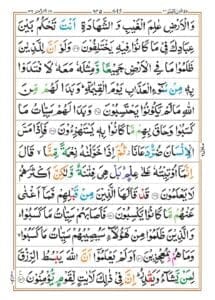 وَالْاَرْضِ عٰلِمَ الْغَيْبِ وَالشَّهَادَةِ اَنْتَ تَحْكُمُ بَيْنَ
عِبَادِكَ فِيْ مَا كَانُوْا فِيْهِ يَخْتَلِفُوْنَ وَلَوْ اَنَّ لِلَّذِيْنَ
ظَلَمُوْا مَا فِي الْاَرْضِ جَمِيْعًا وَّمِثْلَهٗ مَعَهٗ لَافْتَدَوْا
بِهٖ مِنْ سُوْٓءِ الْعَذَابِ يَوْمَ الْقِيٰمَةِ وَبَدَا لَهُمْ مِّنَ
اللّٰهِ مَا لَمْ يَكُوْنُوْا يَحْتَسِبُوْنَ وَبَدَا لَهُمْ سَيِّاٰتُ مَا
كَسَبُوْا وَحَاقَ بِهِمْ مَّا كَانُوْا بِهٖ يَسْتَهْزِءُوْنَ فَاِذَا مَسَّ
الْاِنْسَانَ ضُرٌّ دَعَانَا ثُمَّ اِذَا خَوَّلْنٰهُ نِعْمَةً مِّنَّا قَالَ
اِنَّمَآ اُوْتِيْتُهٗ عَلٰى عِلْمٍ بَلْ هِيَ فِتْنَةٌ وَّلٰكِنَّ اَكْثَرَهُمْ
لَا يَعْلَمُوْنَ قَدْ قَالَهَا الَّذِيْنَ مِنْ قَبْلِهِمْ فَمَآ اَغْنٰى
عَنْهُمْ مَّا كَانُوْا يَكْسِبُوْنَ فَاَصَابَهُمْ سَيِّاٰتُ مَا كَسَبُوْا
وَالَّذِيْنَ ظَلَمُوْا مِنْ هٰٓؤُلَآءِ سَيُصِيْبُهُمْ سَيِّاٰتُ مَا كَسَبُوْا
وَمَا هُمْ بِمُعْجِزِيْنَ اَوَلَمْ يَعْلَمُوْٓا اَنَّ اللّٰهَ يَبْسُطُ الرِّزْقَ
لِمَنْ يَّشَآءُ وَيَقْدِرُ اِنَّ فِيْ ذٰلِكَ لَاٰيٰتٍ لِّقَوْمٍ يُّؤْمِنُوْنَ